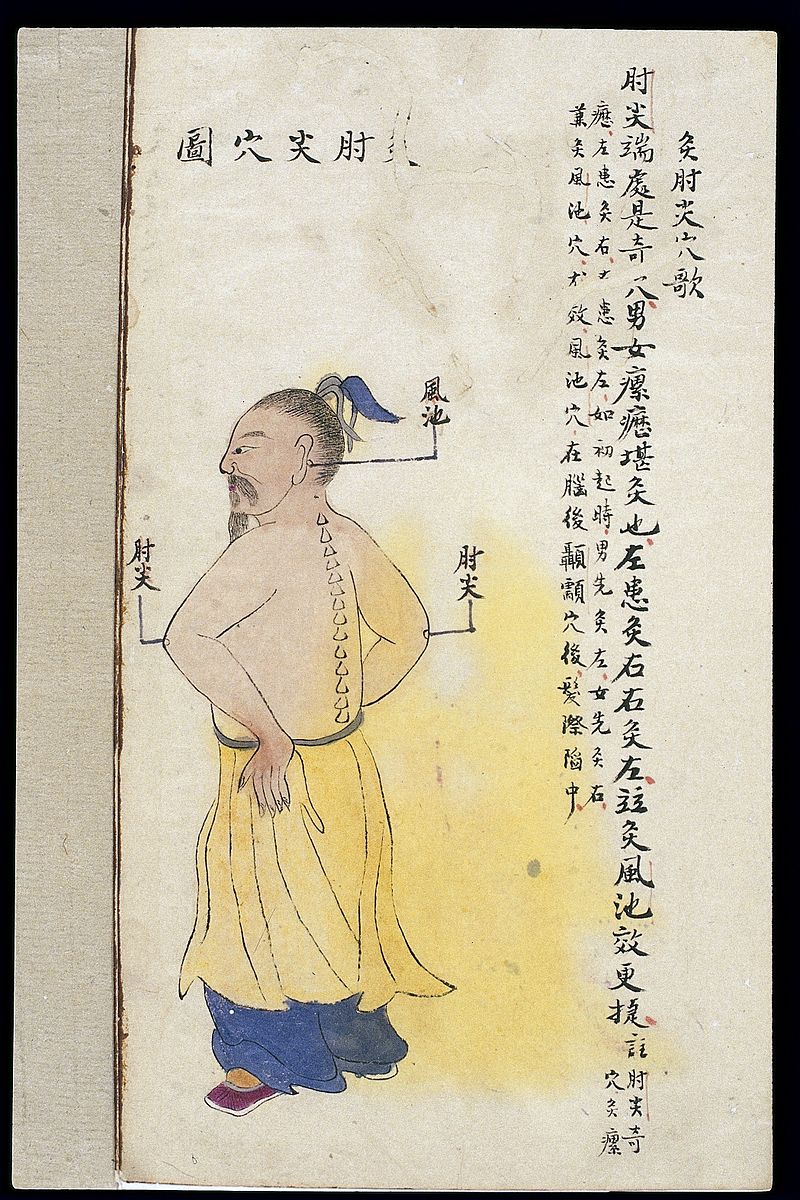 灸肘尖穴歌
肘尖端處是奇穴男女瘰癧堪灸也左患灸右右灸左竝灸風池效更捷
註
肘尖奇
穴灸瘰
癧左患灸右患灸左如初起時男先灸左女先灸右
兼灸風池穴才效風池穴在腦後顳顬穴後髮際陷中
灸肘尖穴圖
風池
肘尖
肘尖